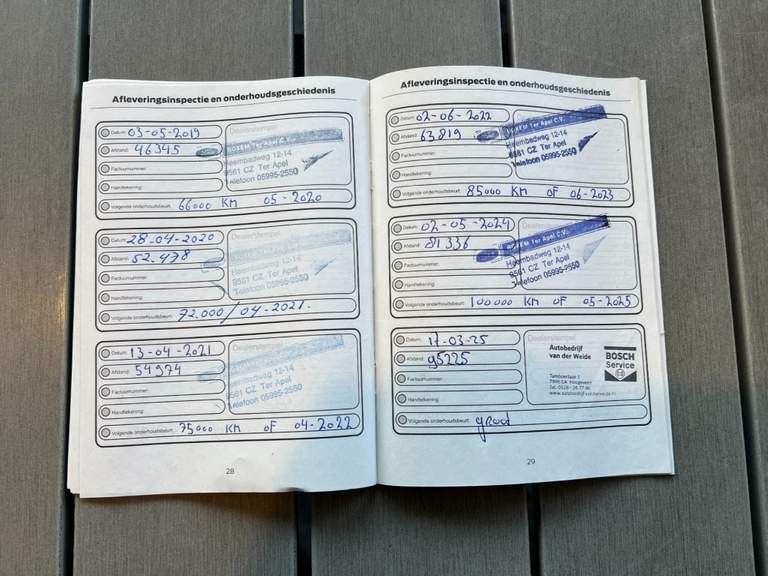 Afleveringsinspectie en onderhoudsgeschiedenis
Datum: 03-05-2019
Afstand: 46345
Factuurnummer:
Handtekening:
Volgende onderhoudsbeurt: 66000 KM 05-2020
Dealerstempel
Heembadweg 12-14
9561 CZ Ter Apel
Telefoon 05995-2550
Datum: 28-04-2020
Afstand: 52.478
Factuurnummer:
Handtekening:
Volgende onderhoudsbeurt: 72.000/04-2021.
Dealerstempel
Heembadweg 12-14
9561 CZ Ter Apel
Telefoon 05995-2550
Datum: 13-04-2021
Afstand: 54974
Factuurnummer:
Handtekening:
Volgende onderhoudsbeurt: 75000 KM OF 04-2022
Dealerstempel
Heembadweg 12-14
9561 CZ Ter Apel
Telefoon 05995-2550
28
Afleveringsinspectie en onderhoudsgeschiedenis
Datum: 02-06-2022
Afstand: 63819
Factuurnummer:
Handtekening:
Volgende onderhoudsbeurt: 85000 KM OF 06-2023
Ter Apel C.V.
Heembadweg 12-14
9561 CZ Ter Apel
Telefoon 05995-2550
Datum: 02-05-2024
Afstand: 81336
Factuurnummer:
Handtekening:
Volgende onderhoudsbeurt: 100000 KM OF 05-2025
Ter Apel C.V.
Heembadweg 12-14
9561 CZ Ter Apel
Telefoon 05995-2550
Datum: 17-03-25
Afstand: 95225
Factuurnummer:
Handtekening:
Volgende onderhoudsbeurt: groot
Autobedrijf
van der Weide
BOSCH
Service
29